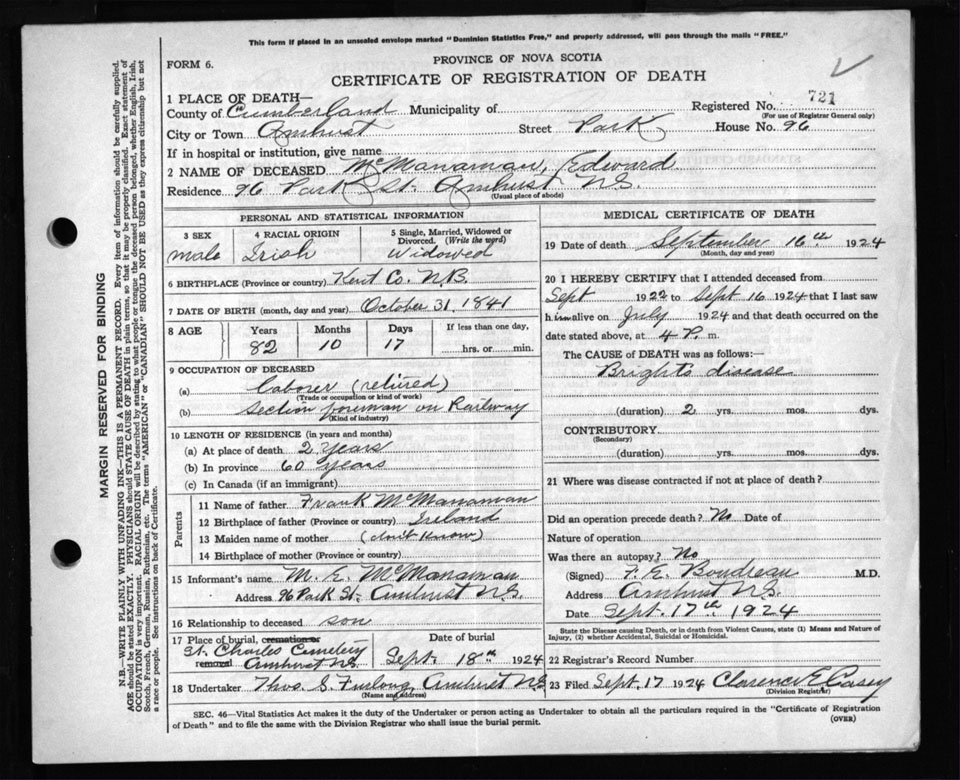 This form if placed in an unsealed envelope marked "Dominion Statistics Free," and properly addressed, will pass through the mails "FREE."
FORM 6.
PROVINCE OF NOVA SCOTIA
CERTIFICATE OF REGISTRATION OF DEATH
1 PLACE OF DEATH—
County of Cumberland Municipality of
Registered No. 721
(For use of Registrar General only)
City or Town Amhurst Street Park House No. 96
If in hospital or institution, give name
2 NAME OF DECEASED McManaman, Edward
Residence 96 Park St. Amhurst N.S.
(Usual place of abode)
PERSONAL AND STATISTICAL INFORMATION
3 SEX
male
4 RACIAL ORIGIN
Irish
5 Single, Married, Widowed or
Divorced. (Write the word)
Widowed
6 BIRTHPLACE (Province or country) Kent Co. N.B.
7 DATE OF BIRTH (month, day and year) October 31. 1841
8 AGE
Years Months Days If less than one day,
82 10 17 hrs. or min.
9 OCCUPATION OF DECEASED
(a) Laborer (retired)
(Trade or occupation or kind of work)
(b) Section foreman on Railway
(Kind of industry)
10 LENGTH OF RESIDENCE (in years and months)
(a) At place of death 2 years
(b) In province 60 years
(c) In Canada (if an immigrant)
Parents
11 Name of father Frank McManaman
12 Birthplace of father (Province or country) Ireland
13 Maiden name of mother (dont know)
14 Birthplace of mother (Province or country)
15 Informant's name M. E. McManaman
Address 96 Park St. Amhurst N.S.
16 Relationship to deceased son
17 Place of burial, cremation or
St. Charles Cemetery
removal Amhurst N.S.
Date of burial
Sept. 18th 1924
18 Undertaker Thos. S. Furlong Amhurst N.S.
(Name and address)
MEDICAL CERTIFICATE OF DEATH
19 Date of death September 16th 1924
(Month, day and year)
20 I HEREBY CERTIFY that I attended deceased from
Sept 1922 to Sept 16 1924 that I last saw
him alive on July 1924 and that death occurred on the
date stated above, at 4 P. m.
The CAUSE of DEATH was as follows:
Brights disease
(duration) 2 yrs. mos. dys.
CONTRIBUTORY
(Secondary)
(duration) yrs. mos. dys.
21 Where was disease contracted if not at place of death?
Did an operation precede death? No Date of
Nature of operation
Was there an autopsy? No
(Signed) F. E. Boudreau M.D.
Address Amhurst N.S.
Date Sept. 17th 1924
State the Disease causing Death, or in death from Violent Causes, state (1) Means and Nature of
Injury, (2) whether Accidental, Suicidal or Homicidal.
22 Registrar's Record Number
23 Filed Sept. 17 1924 Clarence E Casey
(Division Registrar)
SEC. 46—Vital Statistics Act makes it the duty of the Undertaker or person acting as Undertaker to obtain all the particulars required in the "Certificate of Registration
of Death" and to file the same with the Division Registrar who shall issue the burial permit.
(OVER)
MARGIN RESERVED FOR BINDING
N.B.—WRITE PLAINLY WITH UNFADING INK—THIS IS A PERMANENT RECORD. Every item of information should be carefully supplied.
AGE should be stated EXACTLY. PHYSICIANS should STATE CAUSE OF DEATH in plain terms, so that it may be properly classified. Exact statement of
OCCUPATION is very important. RACIAL ORIGIN will be described by stating to what people or tongue the deceased person belonged, whether English, Irish,
Scotch, French, German, Russian, Ruthenian, etc. The terms "AMERICAN" or "CANADIAN" SHOULD NOT BE USED as they express citizenship but not
a race or people. See instructions on back of Certificate.